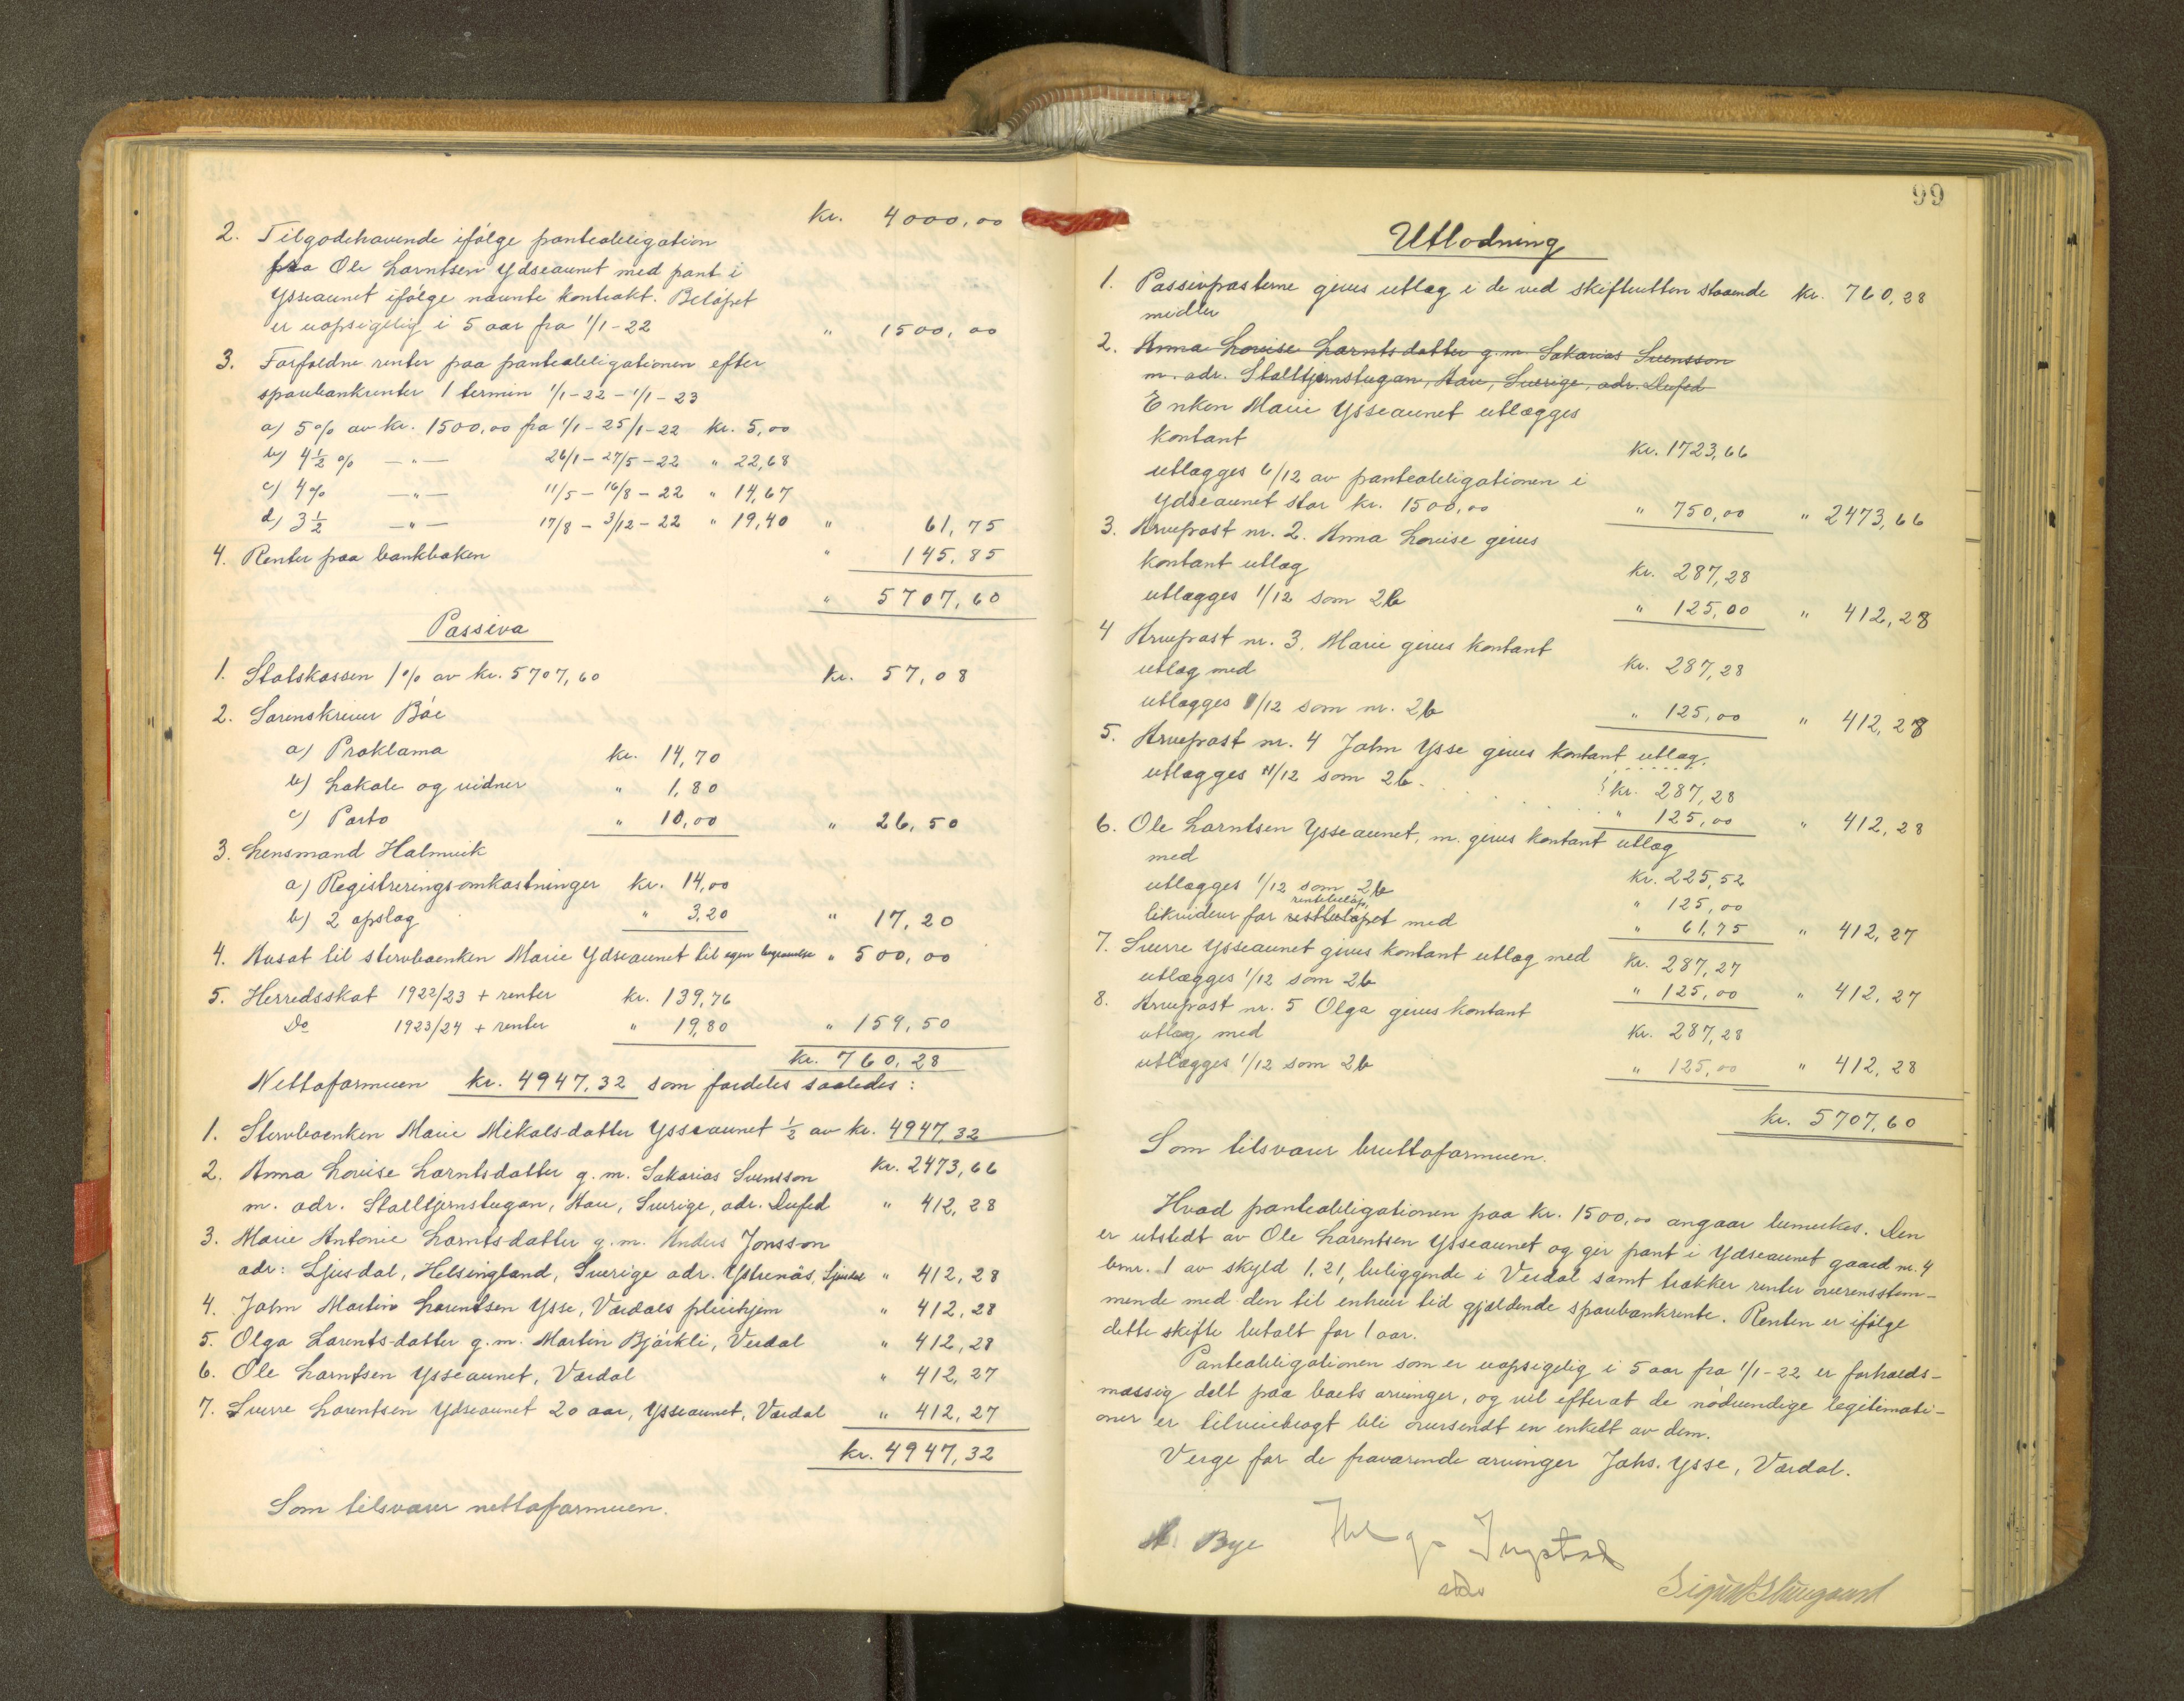 kr. 4000,00
2. Tilgodehavende ifølge panteobligation
fra Ole Larntsen Ydseaunet med pant i
Ysseaunet ifølge nævnte kontrakt. Beløpet
er uopsigelig i 5 aar fra 1/1-22 " 1500,00
3. Forfaldne renter paa panteobligationen efter
sparebankrenter 1 termin 1/1-22 - 1/1-23
a) 5% av kr. 1500,00 fra 1/1-25/1-22 kr. 5,00
b) 4½ % —"— 26/1-27/5-22 " 22,68
c) 4% —"— 11/5-16/8-22 " 14,67
d) 3½ —"— 17/8-3/12-22 " 19,40 " 61,75
4. Renter paa bankboken " 145,85
" 5707,60
Passiva
1. Statskassen 1% av kr. 5707,60 kr. 57,08
2. Sorenskriver Bóe
a) Proklama kr. 14,70
b) Lokale og vidner " 1,80
c) Porto " 10,00 " 26,50
3. Lensmand Halmvik
a) Registreringsomkostninger kr. 14,00
b) 2 opslag " 3,20 " 17,20
4. Avsat til stervboenken Marie Ydseaunet til egen begravelse " 500,00
5. Herredsskat 1922/23 + renter kr. 139,76
Do 1923/24 + renter " 19,80 " 159,50
kr. 760,28
Nettoformuen kr. 4947,32 som fordeles saaledes:
1. Stervboenken Marie Mikalsdatter Ysseaunet ½ av kr. 4947,32
kr. 2473,66
2. Anna Lovise Larntsdatter g.m. Sakarias Svensson
m. adr. Stalltjernstugan, Aare, Sverige, adr. Dufed " 412,28
3. Marie Antonie Larntsdatter g.m. Anders Jonsson
adr: Ljusdal, Helsingland, Sverige adr. Ystenäs, Ljusdal " 412,28
4. John Martin Larentsen Ysse, Værdals pleiehjem " 412,28
5. Olga Larents-datter g.m. Martin Bjørkli, Verdal " 412,28
6. Ole Larntsen Ysseaunet, Værdal " 412,27
7. Sverre Larentsen Ydseaunet 20 aar, Ysseaunet, Værdal " 412,27
kr. 4947,32
Som tilsvarer nettoformuen.
99
Utlodning
1. Passivposterne gives utlæg i de ved skifteretten staaende kr. 760,28
midler
2. Anna Lovise Larntsdatter g.m. Sakarias Svensson
m. adr. Stalltjernstugan, Aare, Sverige, adr. Dufed
Enken Marie Ysseaunet utlægges
kontant kr. 1723,66
utlægges 6/12 av panteobligationen i
Ydseaunet stor kr. 1500,00 " 750,00 " 2473,66
3. Arvepost nr. 2. Anna Lovise gives
kontant utlæg kr. 287,28
utlægges 1/12 som 2b " 125,00 " 412,28
4 Arvepost nr. 3. Marie gives kontant
utlæg med kr. 287,28
utlægges 1/12 som nr. 2b " 125,00 " 412,28
5. Arvepost nr. 4 John Ysse gives kontant utlæg.
kr. 287,28
utlægges 1/12 som 2b. " 125,00 " 412,28
6. Ole Larntsen Ysseaunet, m. gives kontant utlæg
med kr. 225,52
utlægges 1/12 som 2b " 125,00
rentebeløp,
likviderer for restbeløpet med " 61,75 " 412,27
7. Sverre Ysseaunet gives kontant utlæg med kr. 287,27
utlægges 1/12 som 2b " 125,00 " 412,27
8. Arvepost nr. 5 Olga gives kontant
utlæg med kr. 287,28
utlægges 1/12 som 2b " 125,00 " 412,28
kr. 5707,60
Som tilsvarer bruttoformuen.
Hvad panteobligationen paa kr. 1500,00 angaar bemerkes. Den
er utstedt av Ole Larentsen Ysseaunet og gir pant i Ydseaunet gaard nr. 4
bnr. 1 av skyld 1,21, beliggende i Verdal samt trækker renter overensstem-
mende med den til enhver tid gjældende sparebankrente. Renten er ifølge
dette skifte betalt for 1 aar.
Panteobligationen som er uopsigelig i 5 aar fra 1/1-22 er forholds-
mæssig delt paa boets arvinger, og vil efterat de nødvendige legitimati-
oner er tilveiebragt bli oversendt en enkelt av dem.
Verge for de fraværende arvinger Johs. Ysse, Værdal.
A. Bye Helge Ingstad
Sigurd